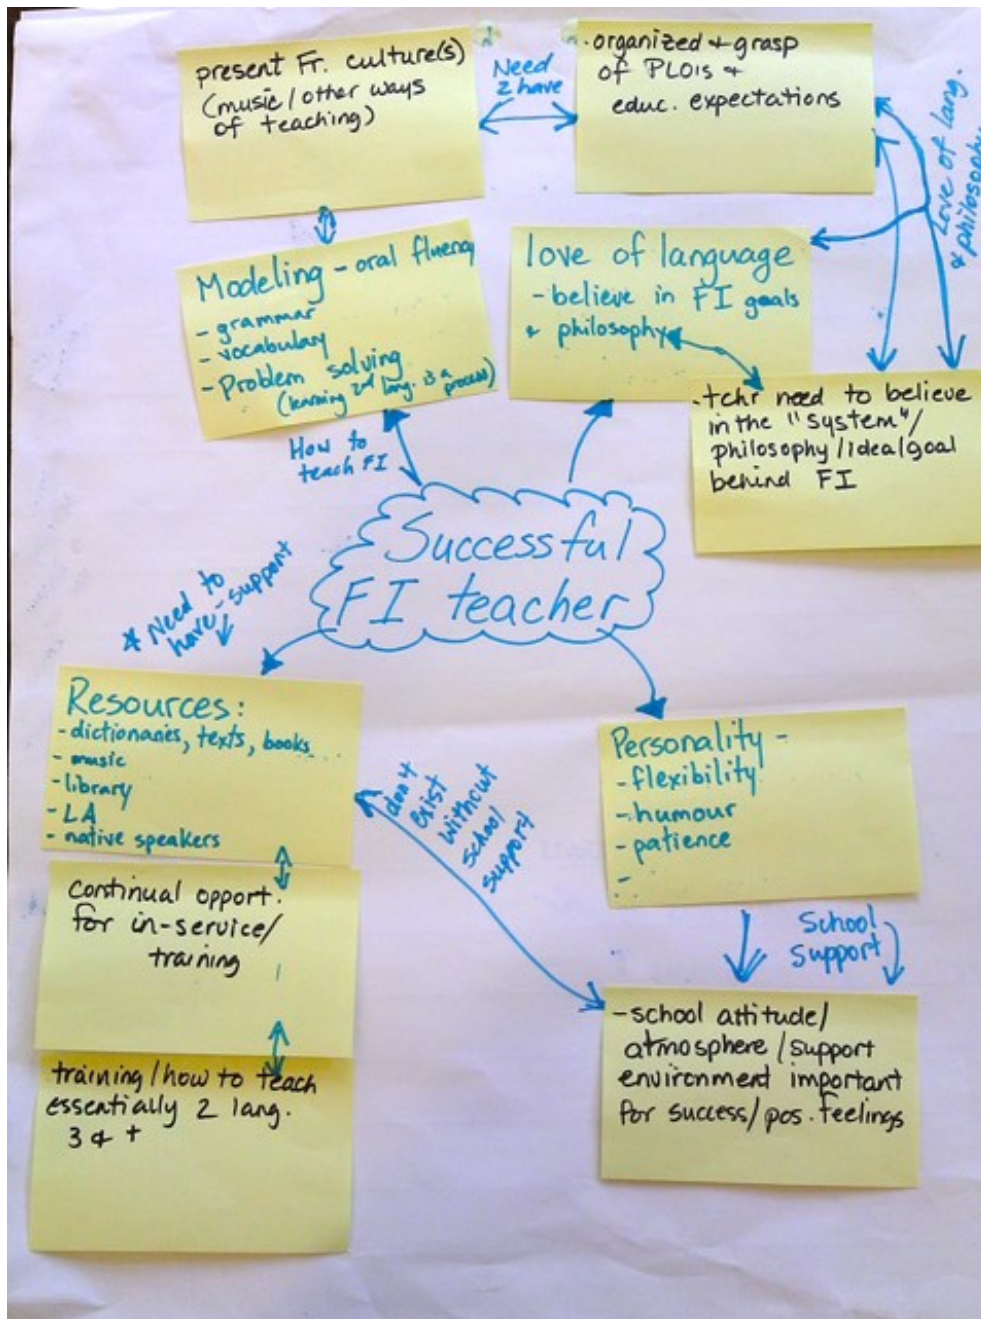 present Fr. culture(s)
(music / other ways
of teaching)
Need
2 have
.organized & grasp
of PLO's &
educ. expectations
Love of lang.
& philosophy
Modeling - oral fluency
- grammar
- vocabulary
- Problem solving
(learning 2nd lang. is a process)
love of language
- believe in FI goals
& philosophy
.tchr need to believe
in the "system"/
philosophy/idea/goal
behind FI
How to
teach FI
Successful
FI teacher
* Need to
have - support
Resources:
- dictionaries, texts, books...
- music
- library
- LA
- native speakers
don't
exist
without
school
support
Personality -
- flexibility
- humour
- patience
-
continual opport.
for in-service/
training
School
Support
- school attitude/
atmosphere/support
environment important
for success/pos. feelings
training/how to teach
essentially 2 lang.
3 & +